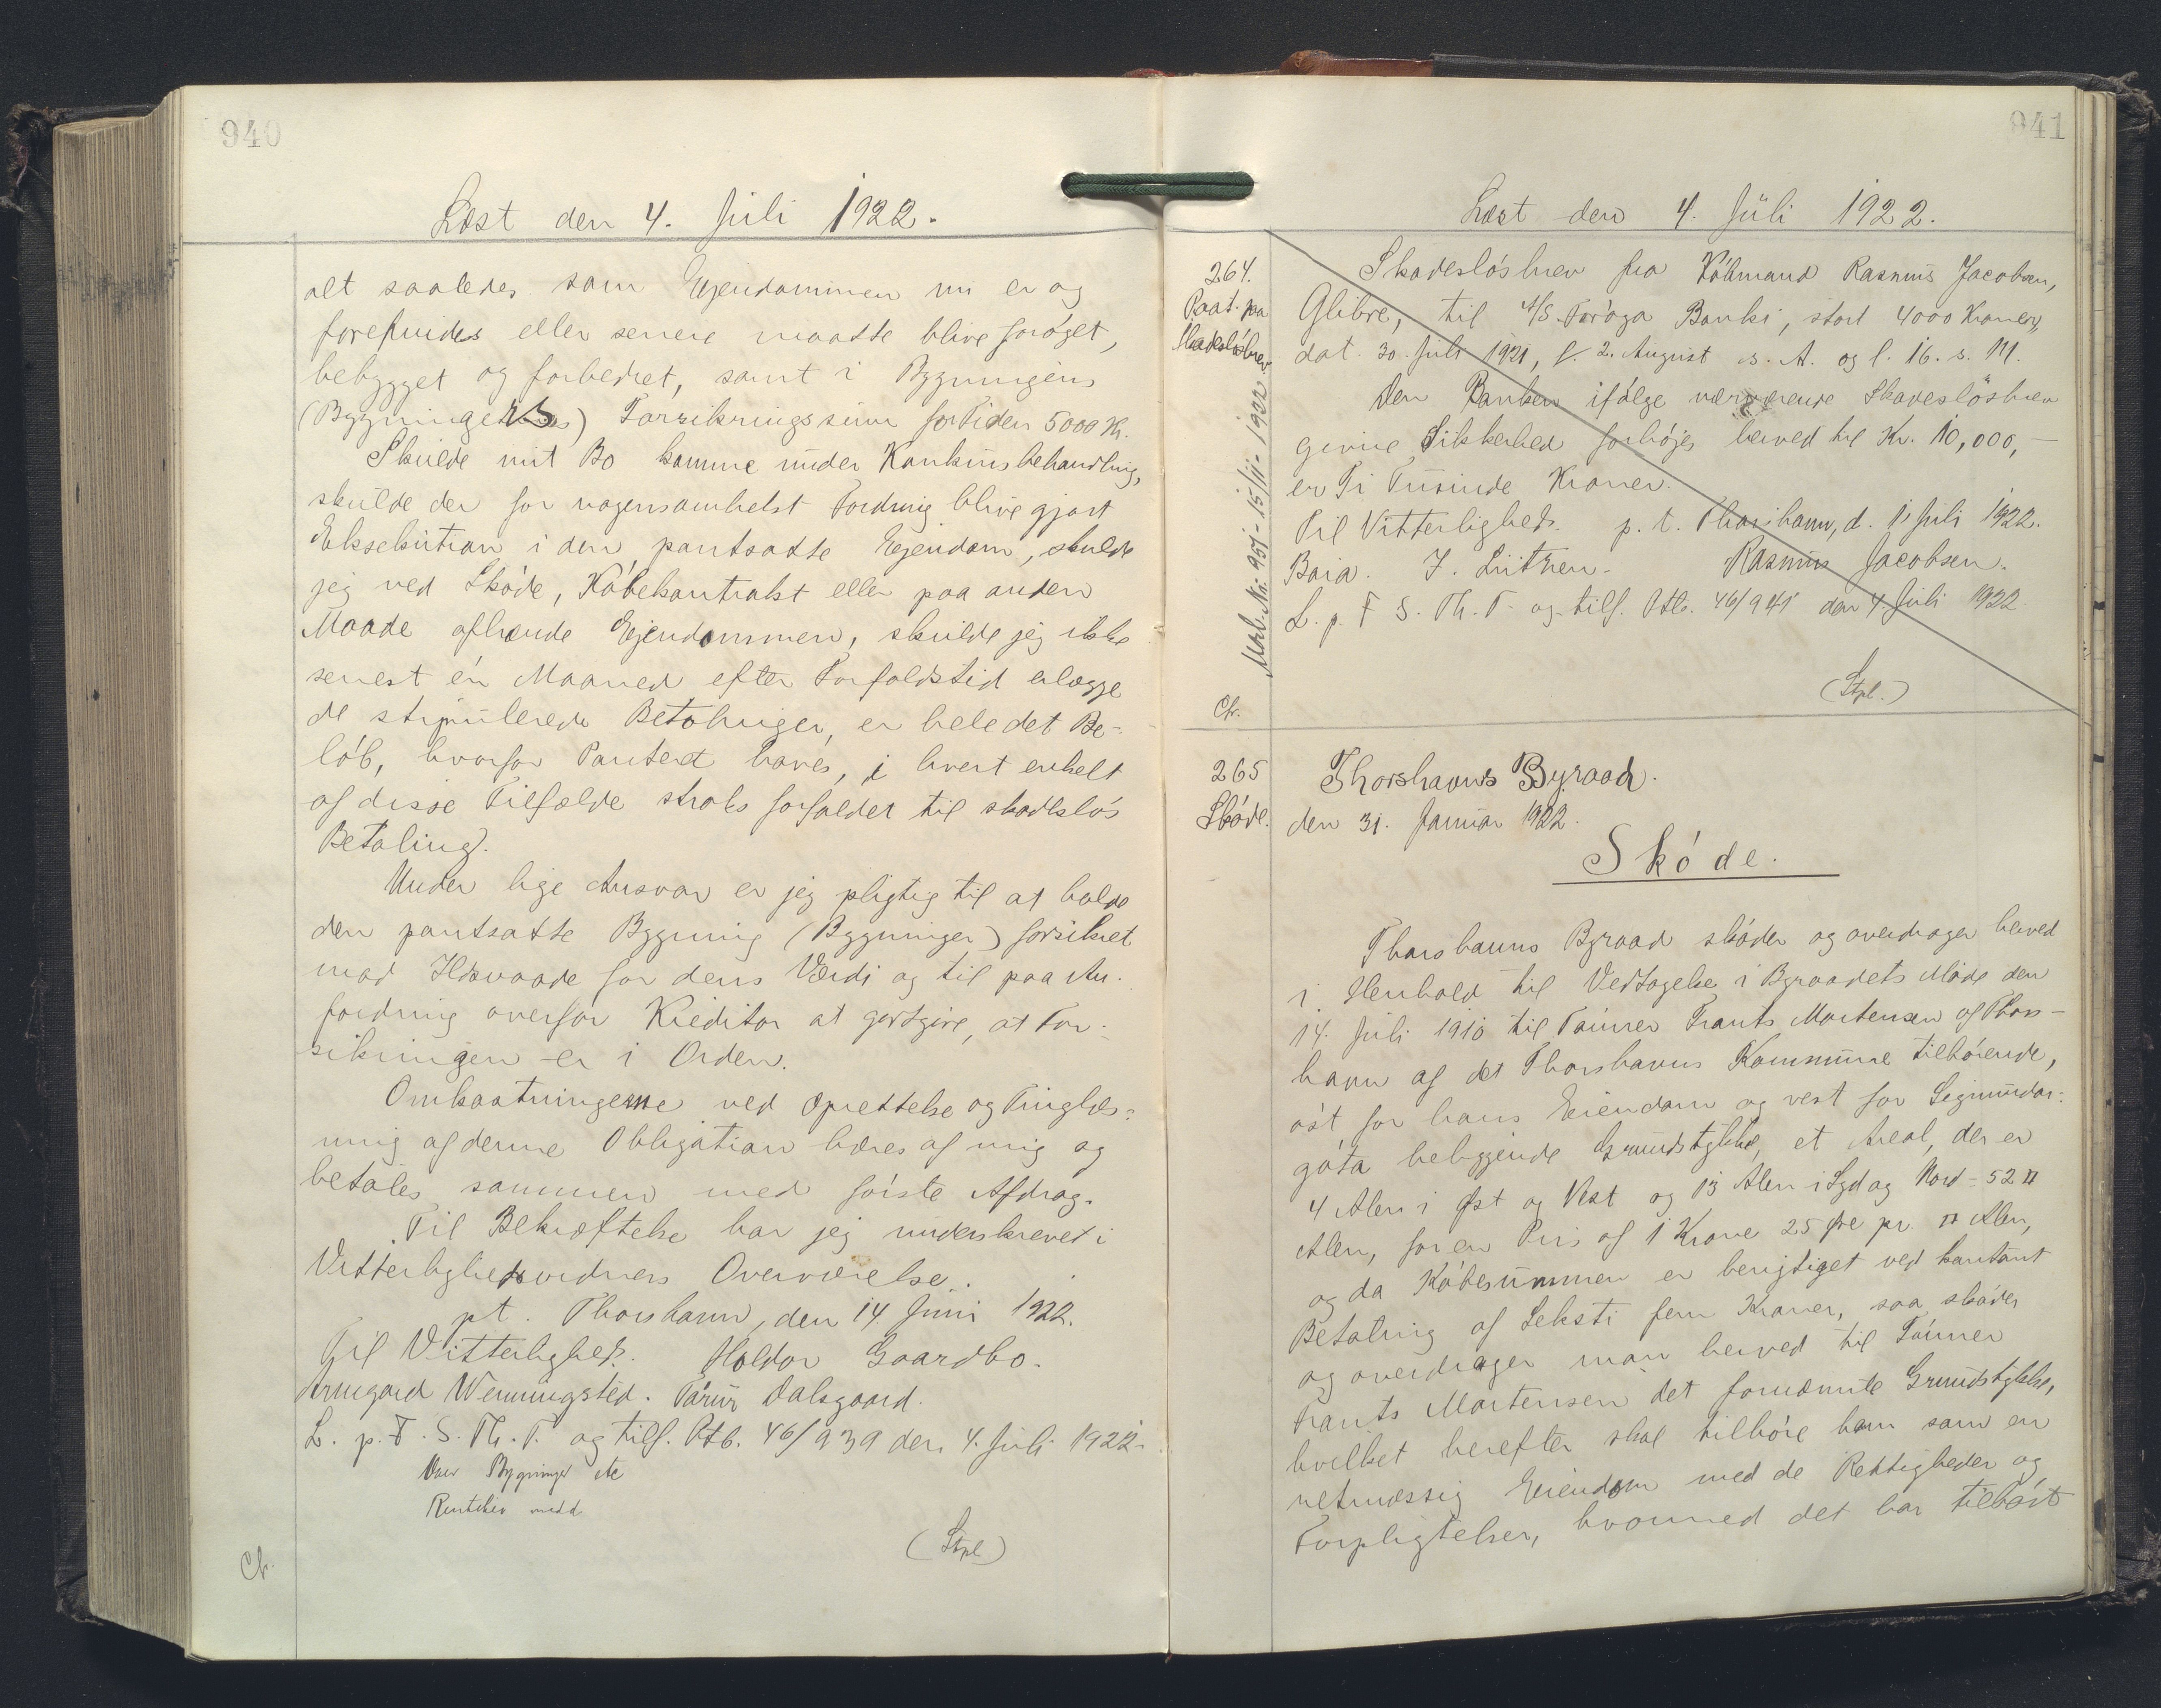 940
Læst den 4. Juli 1922.
alt saaledes som Ejendommen nu er og
forefindes eller senere maatte blive forøget,
bebygget og forbedret, samt i Bygningens
(Bygningernes) Forsikringssum for Tiden 5000 Kr.
Skulde mit Bo komme under Konkursbehandling,
skulde der for nogensomhelst Fordring blive gjort
Eksekution i den pantsatte Ejendom, skulde
jeg ved Skøde, Købekontrakt eller paa anden
Maade afhænde Ejendommen, skulde jeg ikke
senest én Maaned efter Forfaldstid erlægge
de stipulerede Betalinger, er hele det Be-
løb, hvorfor Panteret haves, i hvert enkelt
af disse Tilfælde straks forfaldet til skadesløs
Betaling.
Under lige Ansvar er jeg pligtig til at holde
den pantsatte Bygning (Bygninger) forsikret
mod Ildsvaade for dens Værdi og til paa An-
fordring overfor Kreditor at godtgøre, at For-
sikringen er i Orden.
Omkostningerne ved Oprettelse og Tinglæs-
ning af denne Obligation bæres af mig og
betales sammen med første Afdrag.
Til Bekræftelse har jeg underskrevet i
Vitterlighedsvidners Overværelse.
pt. Thorshavn, den 14 Juni 1922.
Til Vitterlighed: Haldor Gaardbo.
Armgard Wenningsted. Pætur Dalsgaard.
L. p. F. S. Th. T. og tilf. Ptb. 46/939 den 4. Juli 1922.
Bygninger etc
(Stpl)
Ch.
941
Læst den 4. Juli 1922.
264.
Paat. paa
Skadesløsbrev
Skadesløsbrev fra Købmand Rasmus Jacobsen,
Glibre, til A/S. Føroya Banki, stort 4000 Kroner,
dat. 30. Juli 1921, l. 2. August s. A. og l. 16. s. M.
Den Banken ifølge nærværende Skadesløsbrev
givne Sikkerhed forhøjes herved til Kr. 10,000,-
er Ti Tusinde Kroner.
Til Vitterlighed. p. t. Thorshavn, d. 1 Juli 1922.
Baia. J. Lützen. Rasmus Jacobsen.
L. p. F S. Th. T. og tilf. Ptb. 46/941 den 4. Juli 1922
(Stpl.)
Ch.
265
Skøde.
Thorshavns Byraad.
den 31. Januar 1922.
Skøde.
Thorshavns Byraad skøder og overdrager herved
i Henhold til Vedtagelse i Byraadets Møde den
14. Juli 1910 til Tømrer Frants Mortensen af Thors-
havn af det Thorshavns Kommune tilhørende,
øst for hans Eiendom og vest for Sigmundar-
gøta beliggende Grundstykke, et Areal, der er
4 Alen i Øst og Vest og 13 Alen i Syd og Nord = 52 □
Alen, for en Pris af 1 Krone 25 Øre pr. □ Alen,
og da Købesummen er berigtiget ved kontant
Betaling af Seksti fem Kroner, saa skøder
og overdrager man herved til Tømrer
Frants Mortensen det fornævnte Grundstykke,
hvilket herefter skal tilhøre ham som en
retmæssig Eiendom med de Rettigheder og
Forpligtelser, hvormed det har tilhørt